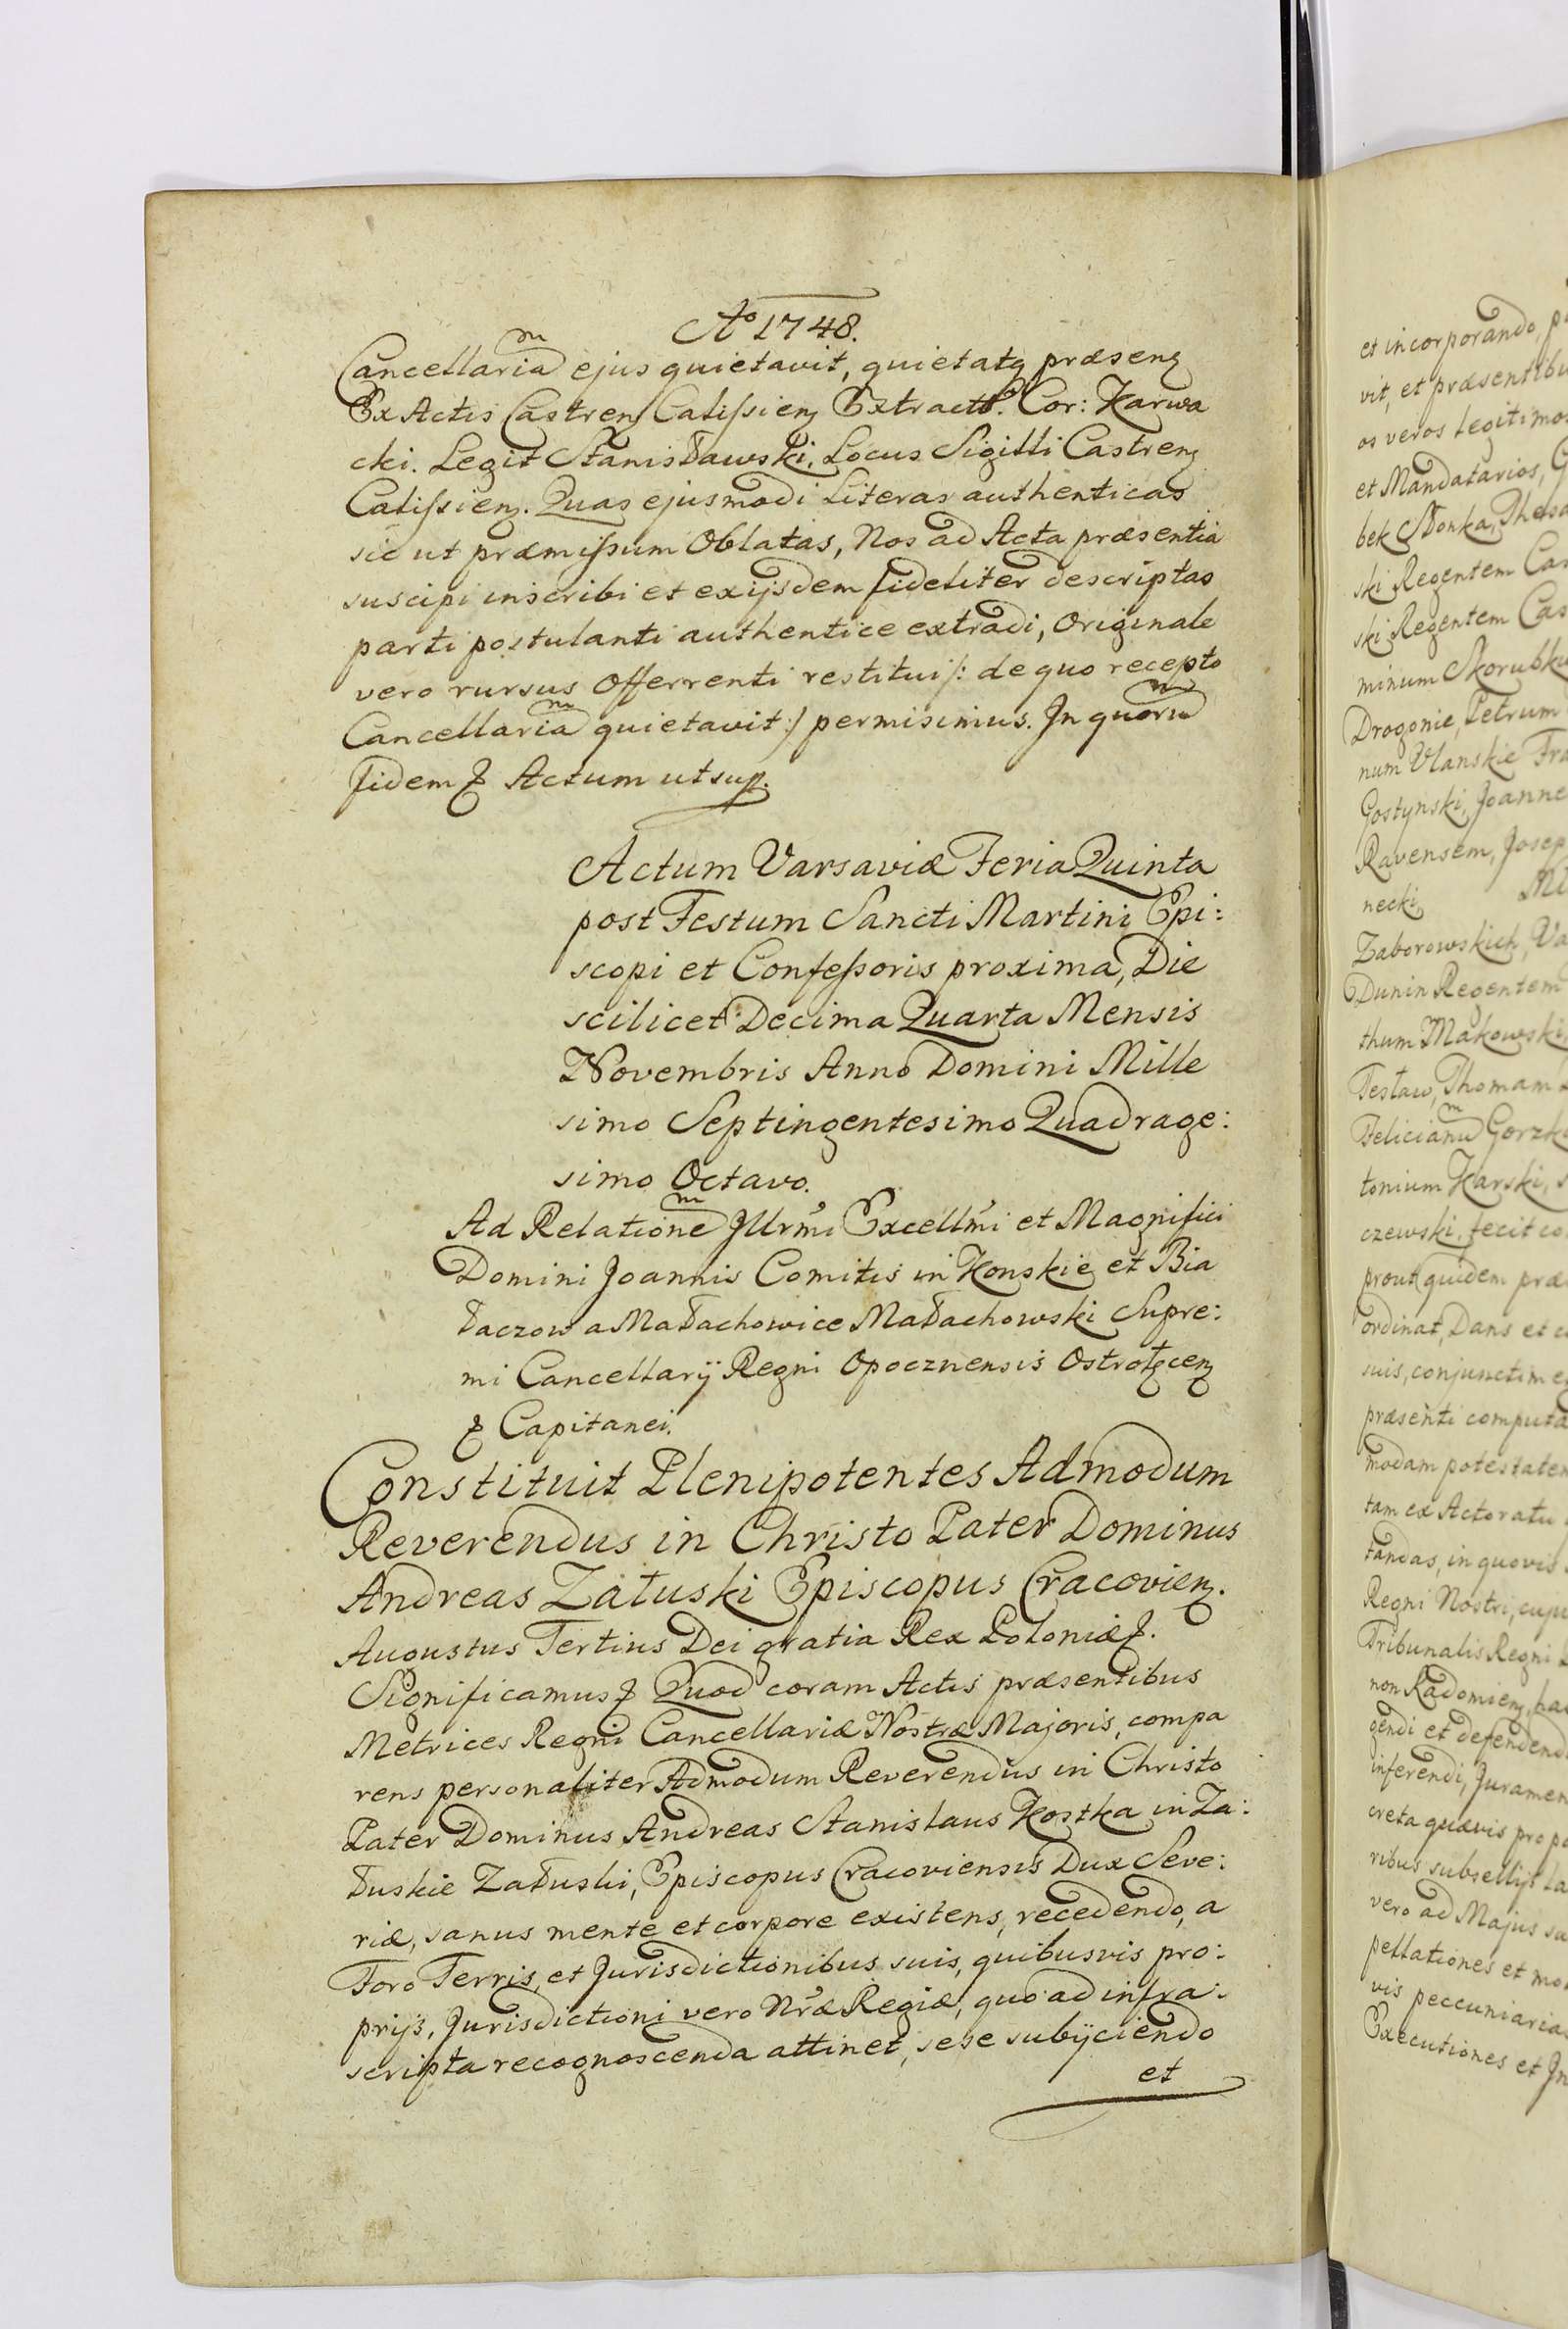 Aᵒ 1748.
Cancellariaᵐ ejus quietavit, quietatq præsenʒ
Ex Actis Castrenʒ Calissienʒ Extractt. Cor: Karwa
cki. Legit Stanisławski. Locus Sigilli Castrenʒ
Calissienʒ. Quas ejusmodi Literas authenticas
sic ut præmissum Oblatas, Nos ad Acta præsentia
suscipi inscribi et exijsdem fideliter descriptas
parti postulanti authentice extradi, Originale
vero rursus Offerrenti restitui /: de quo recepto
Cancellariaᵐ quietavit :/ permisimus. In quoruᵐ
fidem & Actum ut sup.
Actum Varsaviæ Feria Quinta
post Festum Sancti Martini Epi:
scopi et Confessoris proxima, Die
scilicet Decima Quarta Mensis
Novembris Anno Domini Mille
simo Septingentesimo Quadrage:
simo Octavo.
Ad Relationeᵐ Jllrmi Excellmi et Magnifici
Domini Joannis Comitis in Konskie et Bia
łaczow a Małachowice Małachowski Supre:
mi Cancellarij Regni Opocznensis Ostrołęcenʒ
& Capitanei.
Constituit Plenipotentes Admodum
Reverendus in Christo Pater Dominus
Andreas Załuski Episcopus Cracovienʒ.
Augustus Tertius Dei gratia Rex Poloniæ &.
Significamus & Quod coram Actis præsentibus
Metrices Regni Cancellariæ Nostræ Majoris, compa
rens personaliter Admodum Reverendus in Christo
Pater Dominus Andreas Stanislaus Kostka in Za:
łuskie Załuski, Episcopus Cracoviensis Dux Seve:
riæ, sanus mente et corpore existens, recedendo, a
Foro Terris, et Jurisdictionibus suis, quibusvis pro:
prijs, Jurisdictioni vero Nræ Regiæ, quo ad infra:
scripta recognoscenda attinet, sese subijciendo
et
et incorporando,
vit, et præsentibu
os veros legitimos
et Mandatarios,
bek Stonka,
ski Regentem
ski Regentem Cas
minum Skorubku
Drogonie, Petrum
num Ulanskie Fra
Gostynski, Joanne
Ravensem, Josep
necki
Zaborowskich, Va
Dunin Regentem
thum Makowski,
Testaw, Thomam
Felicianuᵐ Gorzk
tonium Karski,
czewski, fecit co
prout quidem præ
ordinat, Dans et
suis, conjunctim
præsenti computa
modam potestatem
tam ex Actoratu
tandas, in quovis
Regni Nostri, cuju
Tribunalis Regni
non Radomienʒ,
gendi et defendendi
inferendi, Juramen
creta quævis propo
ribus subsellijs
vero ad Majus su
pellationes et mo
vis peccuniarias
Executiones et Jn